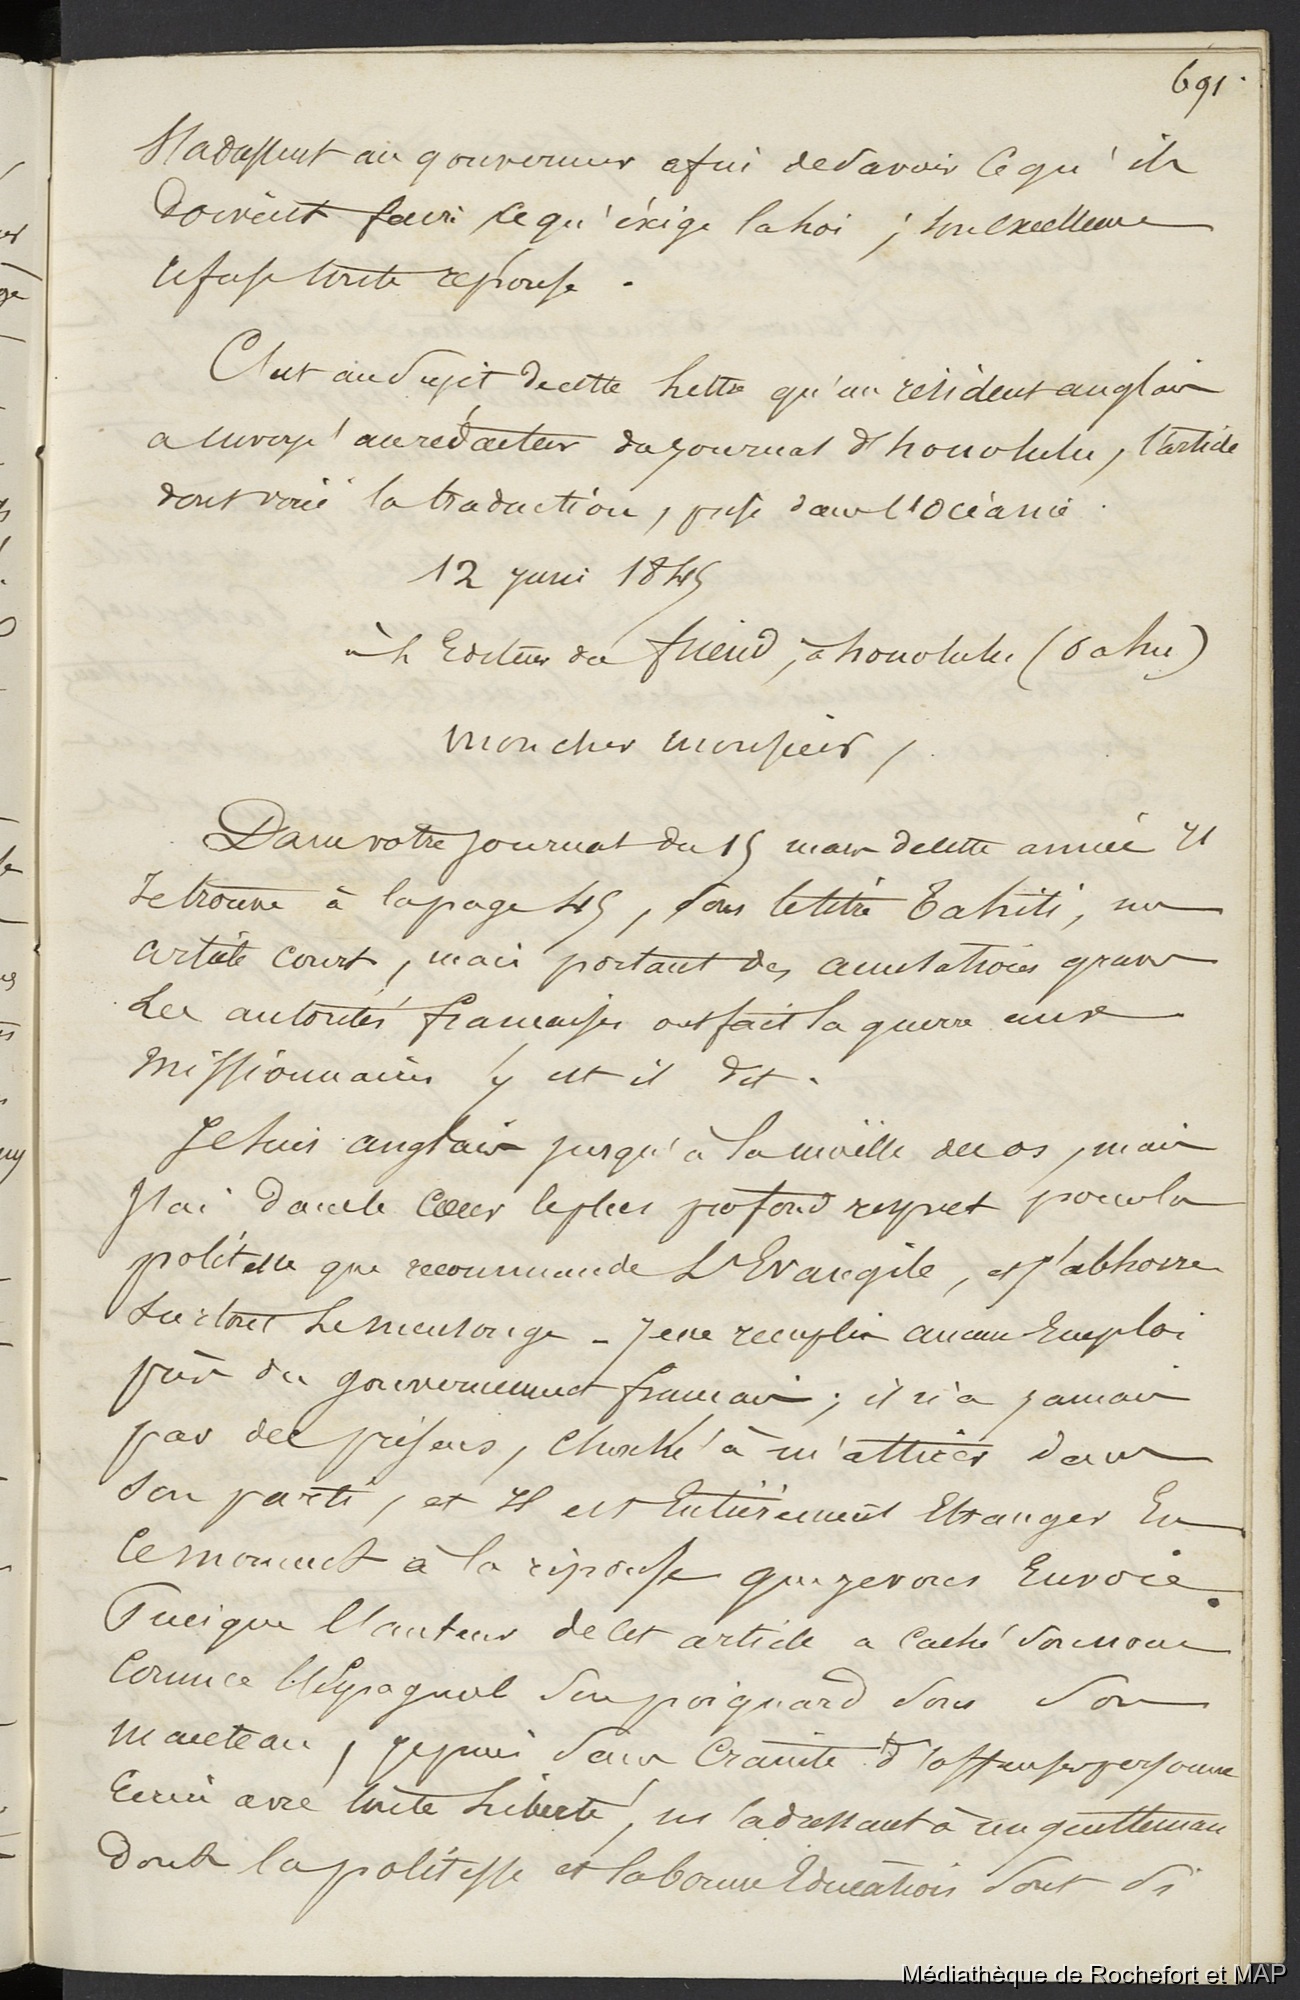 691.
S'adressent au gouverneur afin de savoir ce qu'ils
doivent faire ce qu'éxige la Loi ; son excellence
refuse toute réponse.
C'est au sujet de cette Lettre qu'un résident anglais
a envoyé au rédacteur du journal d'honolulu, l'article
dont voici la traduction, prise dans l'océanie.
12 juin 1845
à L'Editeur du friend, à honolulu (oahu)
Mon cher monsieur,
Dans votre journal du 15 mars de cette année Il
se trouve à la page 45, sous le titre Tahiti, un
article court, mais portant des accusations graves
Les autorités françaises ont fait la guerre aux
Missionnaires y est il dit.
Je suis anglais jusqu'à la moëlle des os, mais
J'ai dans le cœur le plus profond respect pour la
politesse que recommande L'Evangile, et j'abhorre
surtout Le mensonge - Je ne remplis aucun Emploi
près du gouvernement français ; il n'a jamais
par des présens, cherché à m'attirer dans
son parti, et Il est Entièrement Etranger En
ce moment à la réponse que je vous Envoie.
Puisque l'auteur de cet article a caché son nom
comme l'Espagnol son poignard sous son
manteau, je puis sans crainte d'offenser personne
Ecrire avec toute Liberté, m'adressant à un gentleman
dont la politesse et la bonne Education sont si
Médiathèque de Rochefort et MAP